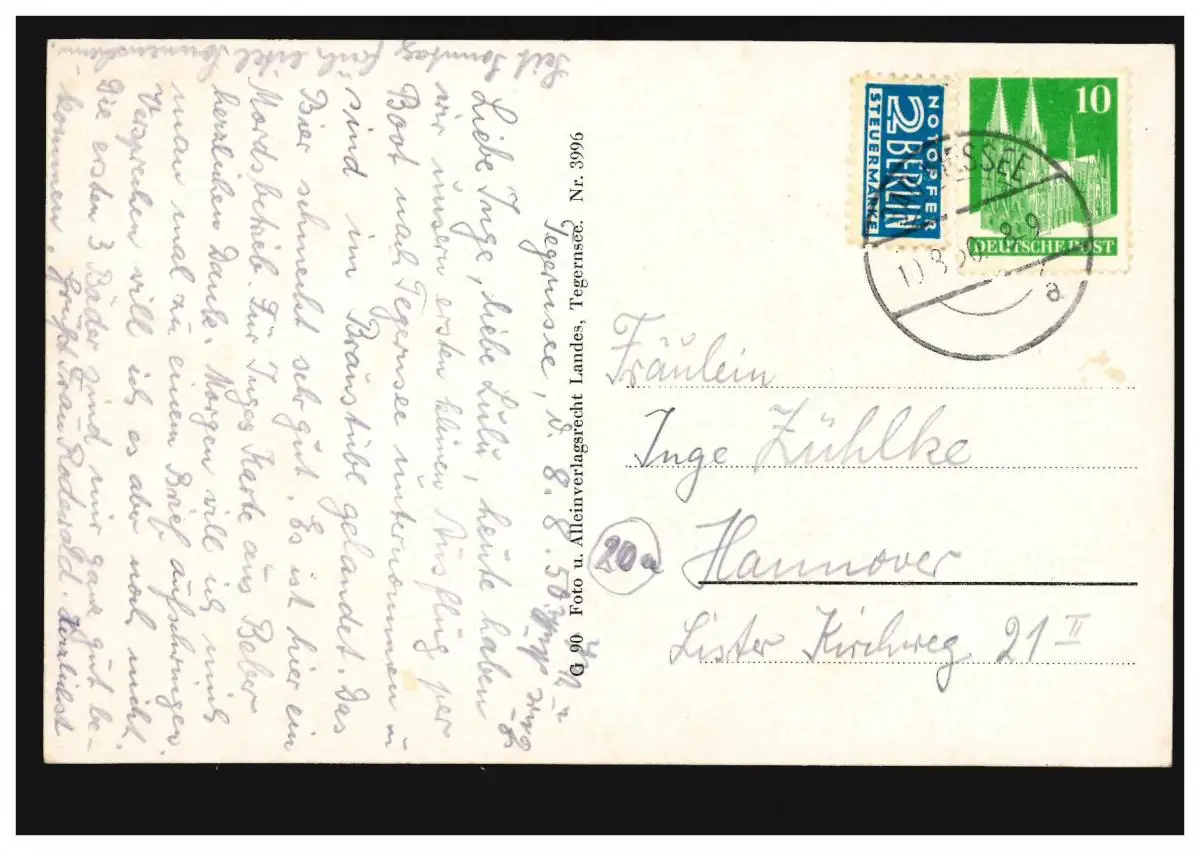 Tegernsee, d. 8. 8. 50
Liebe Inge, liebe Lulu, heute haben
wir unsern ersten kleinen Ausflug per
Boot nach Tegernsee unternommen u
sind im Braustübl gelandet. Das
Bier schmeckt sehr gut. Es ist hier ein
Mordsbetrieb. Für Inges Karte aus Beber
herzlichen Dank. Morgen will ich mich
man mal zu einem Brief aufschwingen.
Versprechen will ich es aber noch nicht.
Die ersten 3 Bäder sind mir ganz gut be-
kommen. Grüßt Frau Herzliebst
Seit Sonntag
G 90 Foto u. Alleinverlagsrecht Landes, Tegernsee. Nr. 3996
NOTOPFER
2 BERLIN
STEUERMARKE
10
DEUTSCHE POST
10.8.50. 8-9
a
Fräulein
Inge Zühlke
20a
Hannover
Lister Kirchweg 21 II